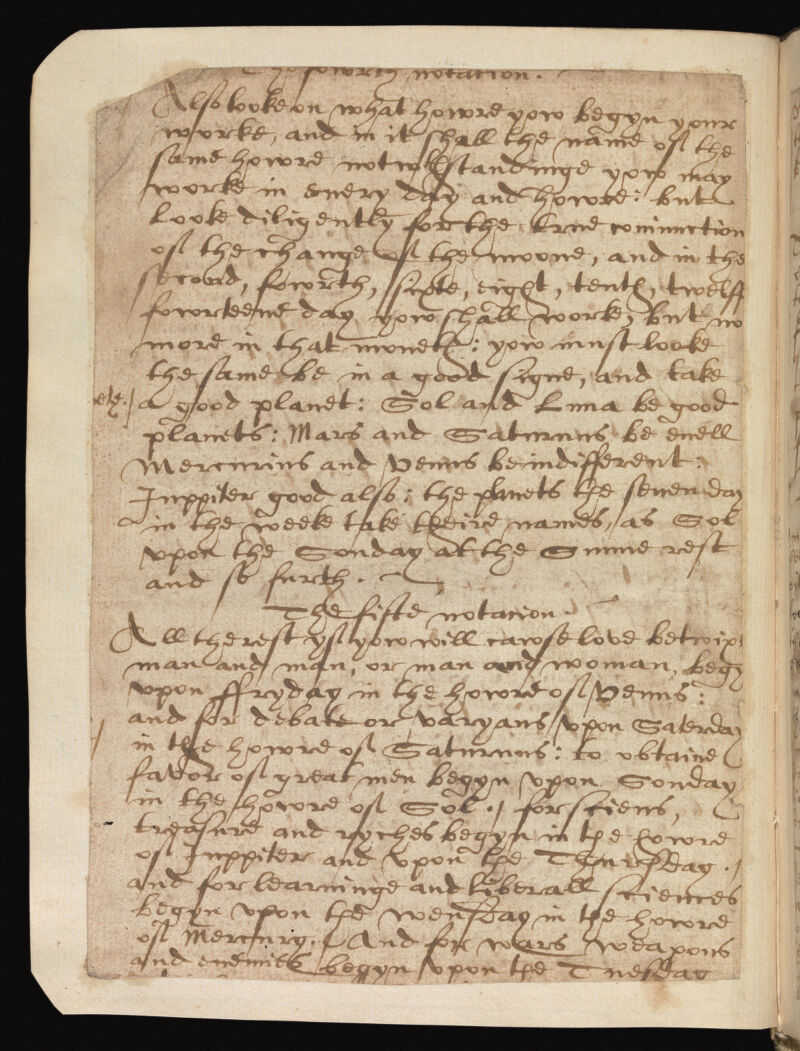 The fowrth notation.
Also looke on what howre yow begyn your
worke, and in it shall the name of the
same howre notwithstandinge yow may
worke in every day and howre: but
Looke diligently for the true coniunction
of the change of the moone, and in the
second, fowrth, sixte, eight, tenth, twelff
fowrteene day yow shall worke, but no
more in that moneth: yow must looke
the same be in a good signe, and take
a good planet: Sol and Luna be good
planets: Mars and Saturnus be evell
Mercurius and Venus be indifferent:
Iuppiter good also: the planets the seven day
in the weeke take theire names, as Sol
vpon the Sonday at the Sunne rest
and so furth.
The fifte notation.
All the rest yf yow will cawse love betwix
man and man, or man and woman, begy
vpon ffryday in the howre of Venus:
and for debate or varyans vpon Saterday
in the howre of Saturnus: to obtaine
favor of great men begyn vpon Sonday
in the howre of Sol. for sciens,
treasure and ryches begyn in the howre
of Iuppiter and vpon the Thursday.
and for learninge and liberall sciences
begyn vpon the wensday in the howre
of Mercury. And for wars weapons
and enemies begyn vpon the Tuesday